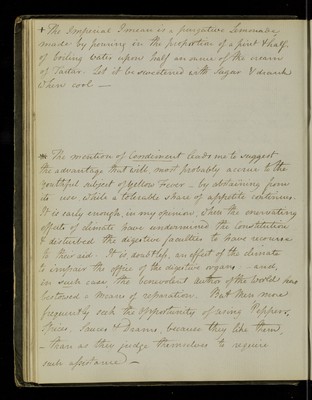 + The Imperial Drink is a purgative Lemonade
made by pouring in the proportion of a pint & half
of boiling water upon half an ounce of the cream
of Tartar. Let it be sweetened with Sugar & drank
when cool —
The mention of Condiment leads me to suggest
the advantage that will, most probably accrue to the
youthful subject of Yellow Fever — by abstaining from
its use while a tolerable share of appetite continues.
It is early enough, in my opinion, when the enervating
effects of climate have undermined the Constitution
& disturbed the digestive faculties to have recourse
to their aid. It is, doubtless, an effect of the climate
to impair the office of the digestive organs, — and,
in such case, the benevolent Author of the World has
bestowed a means of reparation. But Men more
frequently seek the opportunity of using Peppers,
Spices, Sauces & Drams, because they like them,
— than as they judge themselves to require
such assistance —